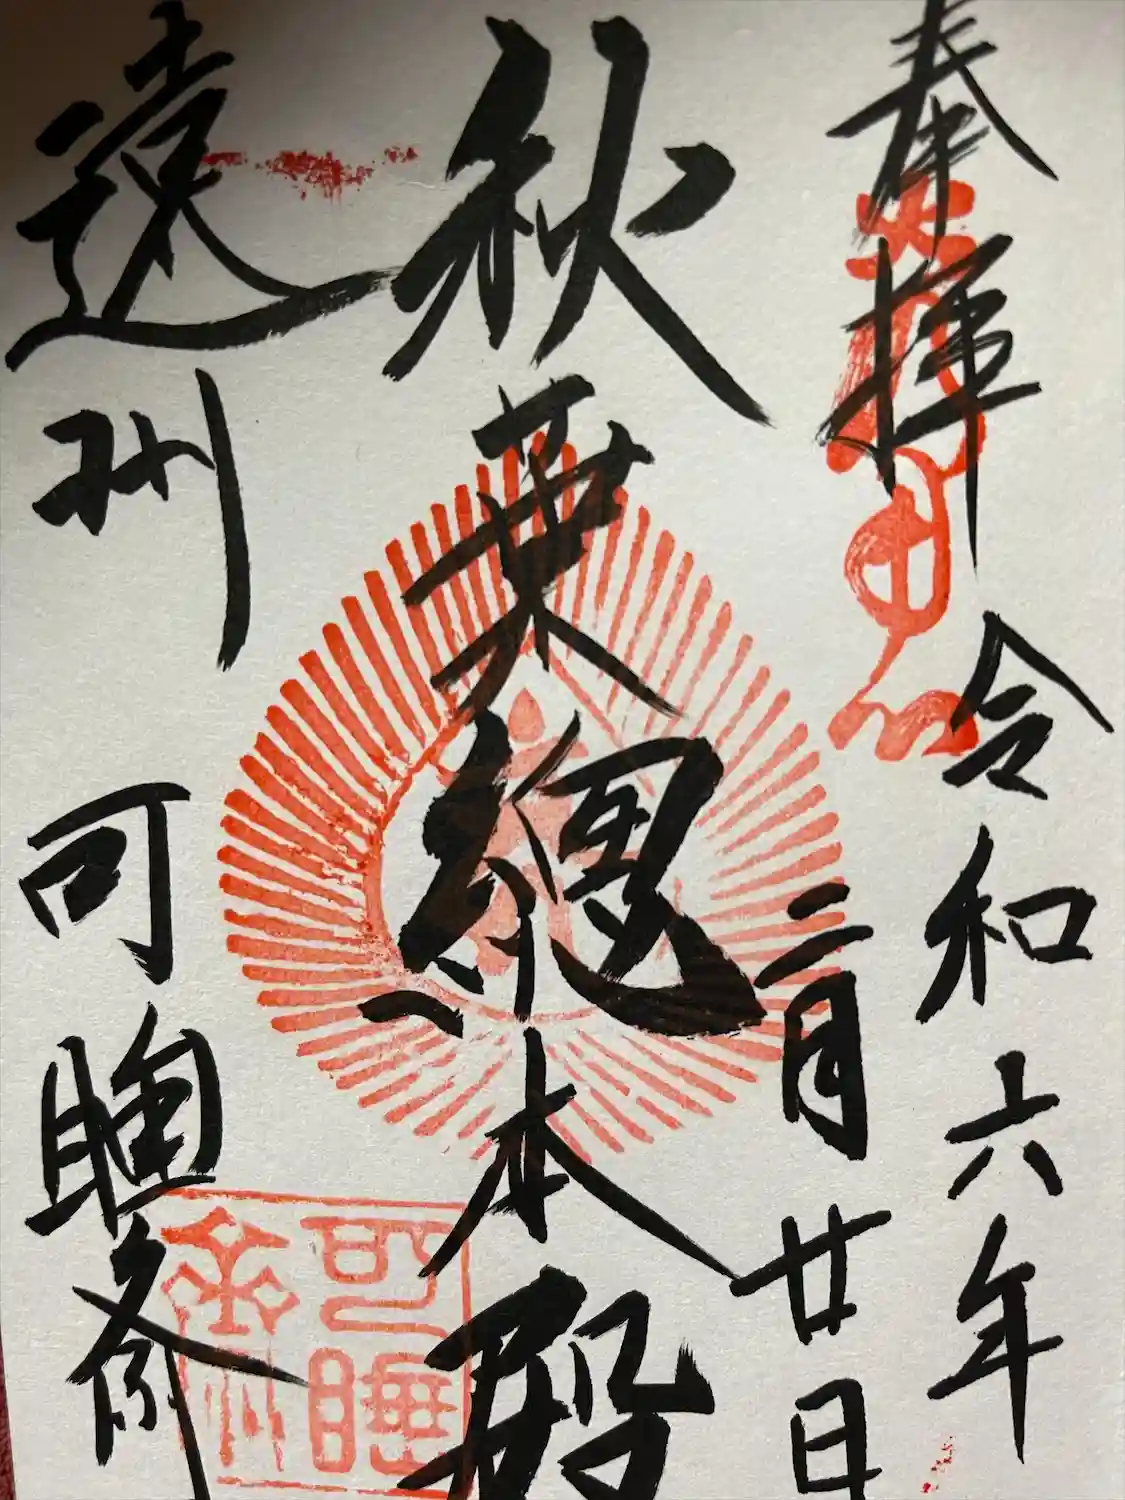 奉拝
令和六年
二月廿日
秋葉總本殿
遠州
可睡斎
可睡